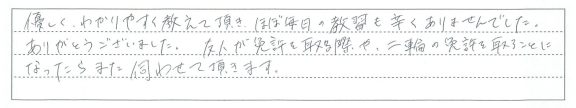 優しく、わかりやすく教えて頂き、ほぼ毎日の教習も辛くありませんでした。
ありがとうございました。 友人が免許を取る際や、二輪の免許を取ることに
なったらまた伺わせて頂きます。